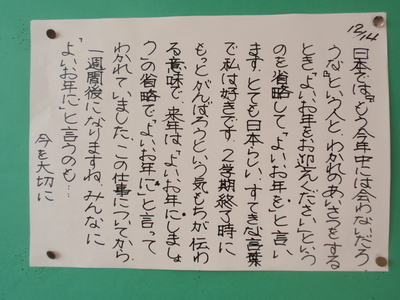 12/14
日本では『もう今年中には会わないだろ
うな』という人と、わかれのあいさつをする
とき「よいお年をお迎えください」という
のを省略して、「よいお年を」と言い
ます。とても日本らしい、すてきな言葉
で私は好きです。2学期終了時に
もっとがんばろうという気もちが伝わ
る意味で、来年は、よいお年にしましょ
うこの省略で「よいお年に」と言って
わかれていました。この仕事についてから
一週間後になりますね、みんなに
「よいお年に」と言うのも…
今を大切に